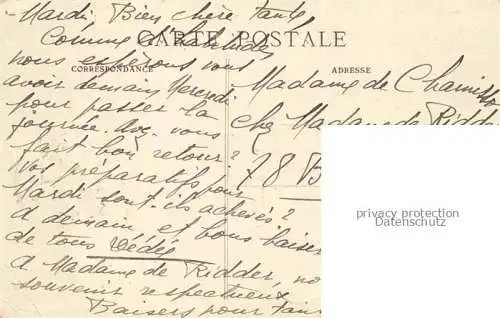 Mardi. Bien chère tante
Comme d'habitude
CARTE POSTALE
nous espérons vous
CORRESPONDANCE
ADRESSE
avoir demain Mercredi
pour passer la
journée. Avez vous
fait bon retour?
Vos préparatifs pour
Mardi sont-ils achevés?
à demain et bons baisers
de tous Dédée
à Madame de Ridder, no
souvenir respectueux
Baisers pour
Madame de
Chez Madame de Ridd
78 B
privacy protection
Datenschutz